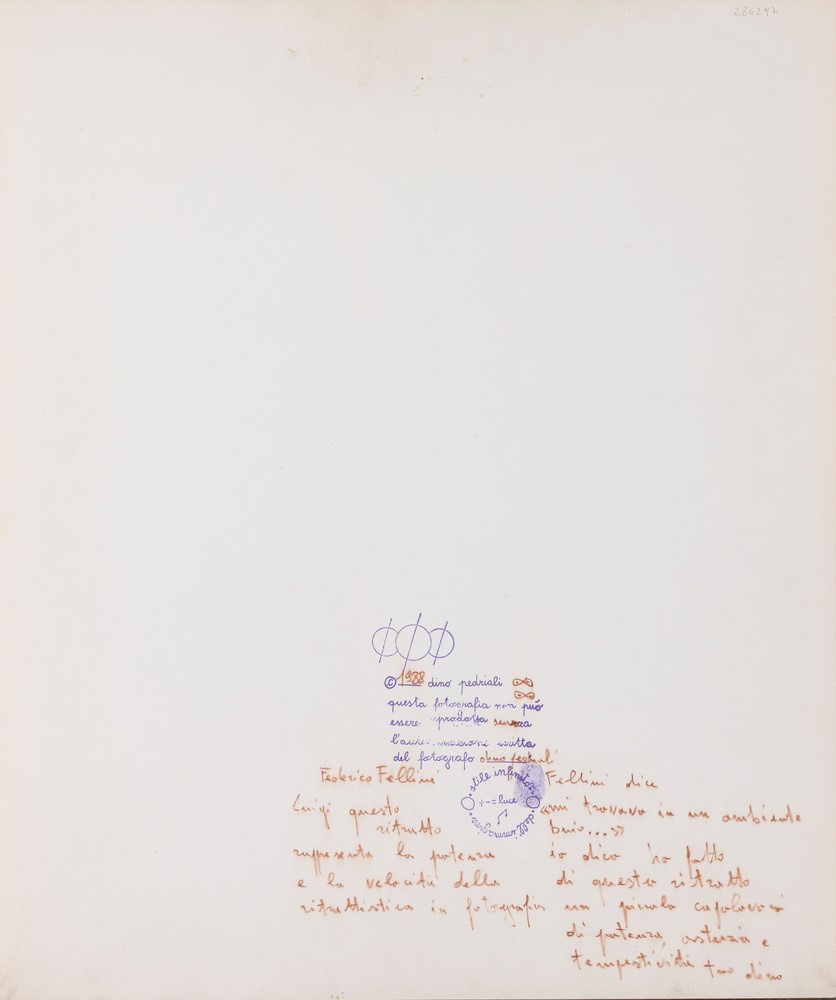 286297
© 1988 dino pedriali
questa fotografia non può
essere riprodotta senza
l'autorizzazione scritta
del fotografo dino pedriali
stile infinito dell'immagine
+-=luce
Federico Fellini
Luigi questo
ritratto
rappresenta la potenza
e la velocità della
ritrattistica in fotografia
Fellini dice
"mi trovavo in un ambiente
buio...»
io dico ho fatto
di questo ritratto
un piccolo capolavoro
di potenza, astuzia e
tempestività tuo dino